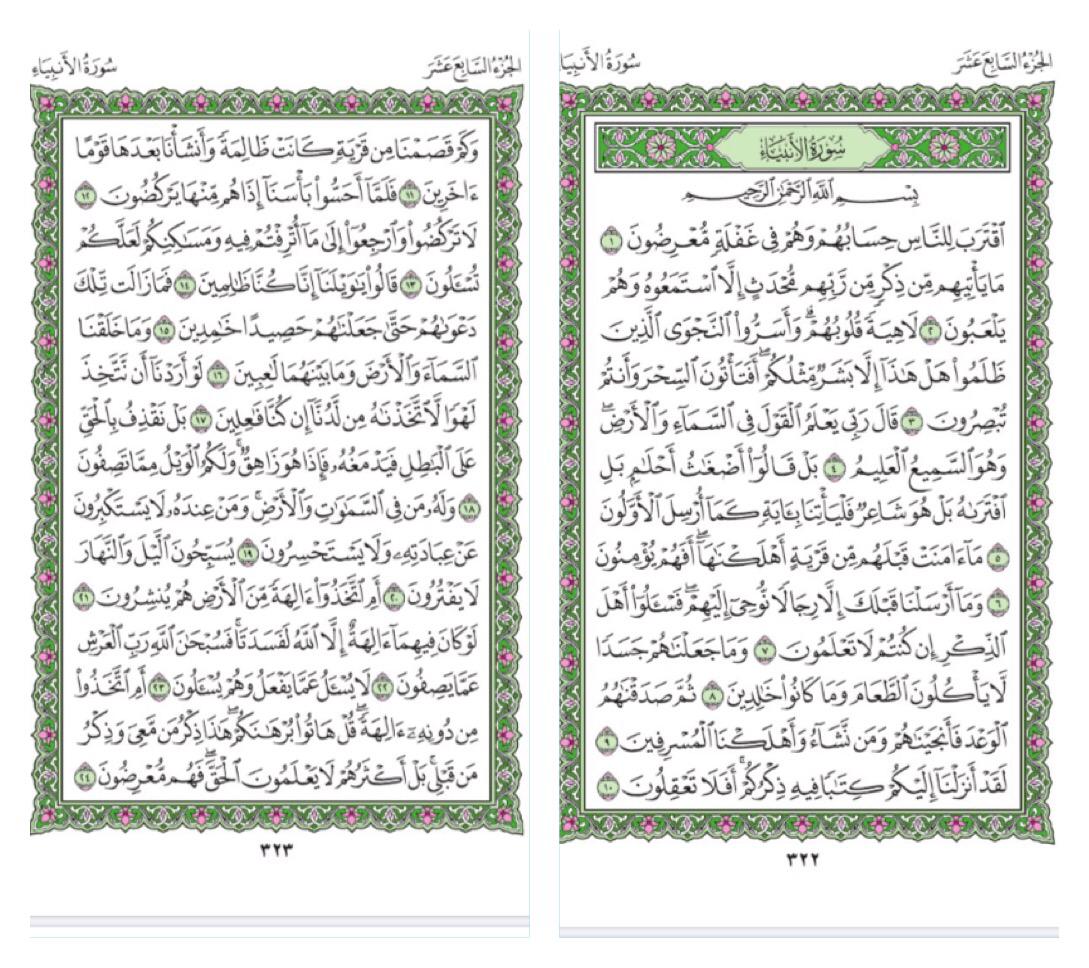 الجزء السابع عشر
سورة الأنبيا
سُورَةُ الأَنبِيَاءِ
بِسْمِ ٱللَّهِ ٱلرَّحْمَٰنِ ٱلرَّحِيمِ
ٱقْتَرَبَ لِلنَّاسِ حِسَابُهُمْ وَهُمْ فِى غَفْلَةٍ مُّعْرِضُونَ ١
مَا يَأْتِيهِم مِّن ذِكْرٍ مِّن رَّبِّهِم مُّحْدَثٍ إِلَّا ٱسْتَمَعُوهُ وَهُمْ
يَلْعَبُونَ ٢ لَاهِيَةً قُلُوبُهُمْ ۗ وَأَسَرُّوا۟ ٱلنَّجْوَى ٱلَّذِينَ
ظَلَمُوا۟ هَلْ هَٰذَآ إِلَّا بَشَرٌ مِّثْلُكُمْ ۖ أَفَتَأْتُونَ ٱلسِّحْرَ وَأَنتُمْ
تُبْصِرُونَ ٣ قَالَ رَبِّى يَعْلَمُ ٱلْقَوْلَ فِى ٱلسَّمَآءِ وَٱلْأَرْضِ ۖ
وَهُوَ ٱلسَّمِيعُ ٱلْعَلِيمُ ٤ بَلْ قَالُوٓا۟ أَضْغَٰثُ أَحْلَٰمٍۭ بَلِ
ٱفْتَرَىٰهُ بَلْ هُوَ شَاعِرٌ فَلْيَأْتِنَا بِـَٔايَةٍ كَمَآ أُرْسِلَ ٱلْأَوَّلُونَ
٥ مَآ ءَامَنَتْ قَبْلَهُم مِّن قَرْيَةٍ أَهْلَكْنَٰهَآ ۖ أَفَهُمْ يُؤْمِنُونَ
٦ وَمَآ أَرْسَلْنَا قَبْلَكَ إِلَّا رِجَالًا نُّوحِىٓ إِلَيْهِمْ ۖ فَسْـَٔلُوٓا۟ أَهْلَ
ٱلذِّكْرِ إِن كُنتُمْ لَا تَعْلَمُونَ ٧ وَمَا جَعَلْنَٰهُمْ جَسَدًا
لَّا يَأْكُلُونَ ٱلطَّعَامَ وَمَا كَانُوا۟ خَٰلِدِينَ ٨ ثُمَّ صَدَقْنَٰهُمُ
ٱلْوَعْدَ فَأَنجَيْنَٰهُمْ وَمَن نَّشَآءُ وَأَهْلَكْنَا ٱلْمُسْرِفِينَ ٩
لَقَدْ أَنزَلْنَآ إِلَيْكُمْ كِتَٰبًا فِيهِ ذِكْرُكُمْ ۖ أَفَلَا تَعْقِلُونَ ١٠
٣٢٢
الجزء السابع عشر
سورة الأنبياء
وَكَمْ قَصَمْنَا مِن قَرْيَةٍ كَانَتْ ظَالِمَةً وَأَنشَأْنَا بَعْدَهَا قَوْمًا
ءَاخَرِينَ ١١ فَلَمَّآ أَحَسُّوا۟ بَأْسَنَآ إِذَا هُم مِّنْهَا يَرْكُضُونَ ١٢
لَا تَرْكُضُوا۟ وَٱرْجِعُوٓا۟ إِلَىٰ مَآ أُتْرِفْتُمْ فِيهِ وَمَسَٰكِنِكُمْ لَعَلَّكُمْ
تُسْـَٔلُونَ ١٣ قَالُوا۟ يَٰوَيْلَنَآ إِنَّا كُنَّا ظَٰلِمِينَ ١٤ فَمَا زَالَت تِّلْكَ
دَعْوَىٰهُمْ حَتَّىٰ جَعَلْنَٰهُمْ حَصِيدًا خَٰمِدِينَ ١٥ وَمَا خَلَقْنَا
ٱلسَّمَآءَ وَٱلْأَرْضَ وَمَا بَيْنَهُمَا لَٰعِبِينَ ١٦ لَوْ أَرَدْنَآ أَن نَّتَّخِذَ
لَهْوًا لَّٱتَّخَذْنَٰهُ مِن لَّدُنَّآ إِن كُنَّا فَٰعِلِينَ ١٧ بَلْ نَقْذِفُ بِٱلْحَقِّ
عَلَى ٱلْبَٰطِلِ فَيَدْمَغُهُۥ فَإِذَا هُوَ زَاهِقٌ ۚ وَلَكُمُ ٱلْوَيْلُ مِمَّا تَصِفُونَ
١٨ وَلَهُۥ مَن فِى ٱلسَّمَٰوَٰتِ وَٱلْأَرْضِ ۚ وَمَنْ عِندَهُۥ لَا يَسْتَكْبِرُونَ
عَنْ عِبَادَتِهِۦ وَلَا يَسْتَحْسِرُونَ ١٩ يُسَبِّحُونَ ٱلَّيْلَ وَٱلنَّهَارَ
لَا يَفْتُرُونَ ٢٠ أَمِ ٱتَّخَذُوٓا۟ ءَالِهَةً مِّنَ ٱلْأَرْضِ هُمْ يُنشِرُونَ ٢١
لَوْ كَانَ فِيهِمَآ ءَالِهَةٌ إِلَّا ٱللَّهُ لَفَسَدَتَا ۚ فَسُبْحَٰنَ ٱللَّهِ رَبِّ ٱلْعَرْشِ
عَمَّا يَصِفُونَ ٢٢ لَا يُسْـَٔلُ عَمَّا يَفْعَلُ وَهُمْ يُسْـَٔلُونَ ٢٣ أَمِ ٱتَّخَذُوا۟
مِن دُونِهِۦٓ ءَالِهَةً ۖ قُلْ هَاتُوا۟ بُرْهَٰنَكُمْ ۖ هَٰذَا ذِكْرُ مَن مَّعِىَ وَذِكْرُ
مَن قَبْلِى ۗ بَلْ أَكْثَرُهُمْ لَا يَعْلَمُونَ ٱلْحَقَّ ۖ فَهُم مُّعْرِضُونَ ٢٤
٣٢٣